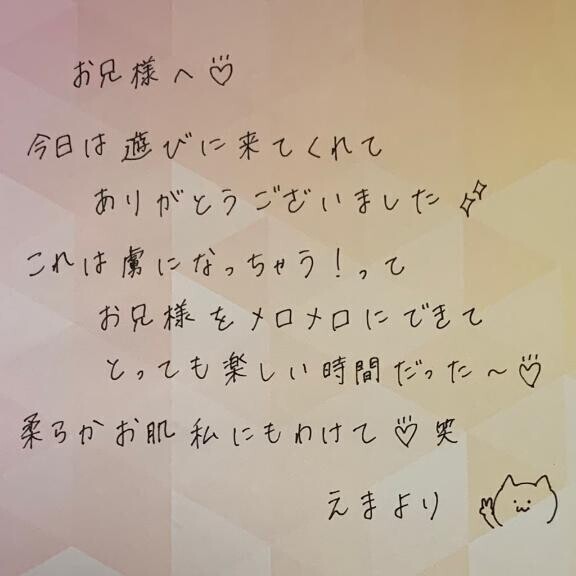 お兄様へ♡
今日は遊びに来てくれて
ありがとうございました
これは虜になっちゃう！って
お兄様をメロメロにできて
とっても楽しい時間だった～♡
柔らかお肌私にもわけて♡笑
えまより